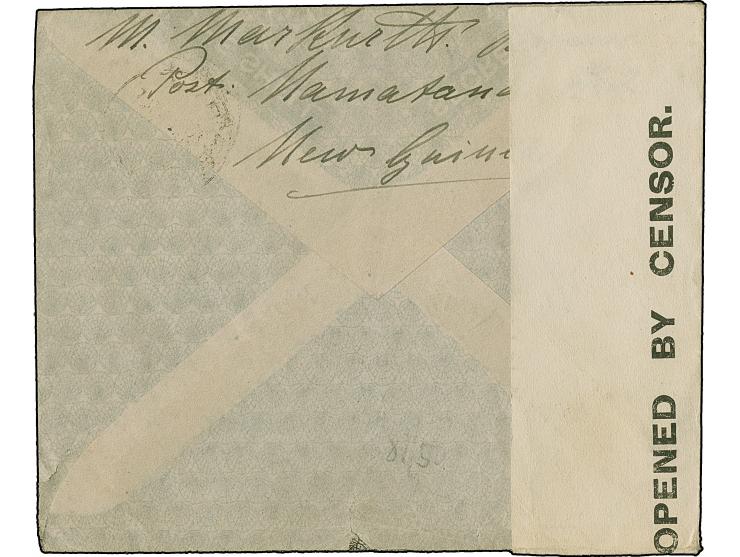 M. Markurth.
Post: Namatana
New Guin
OPENED BY CENSOR.
81,50